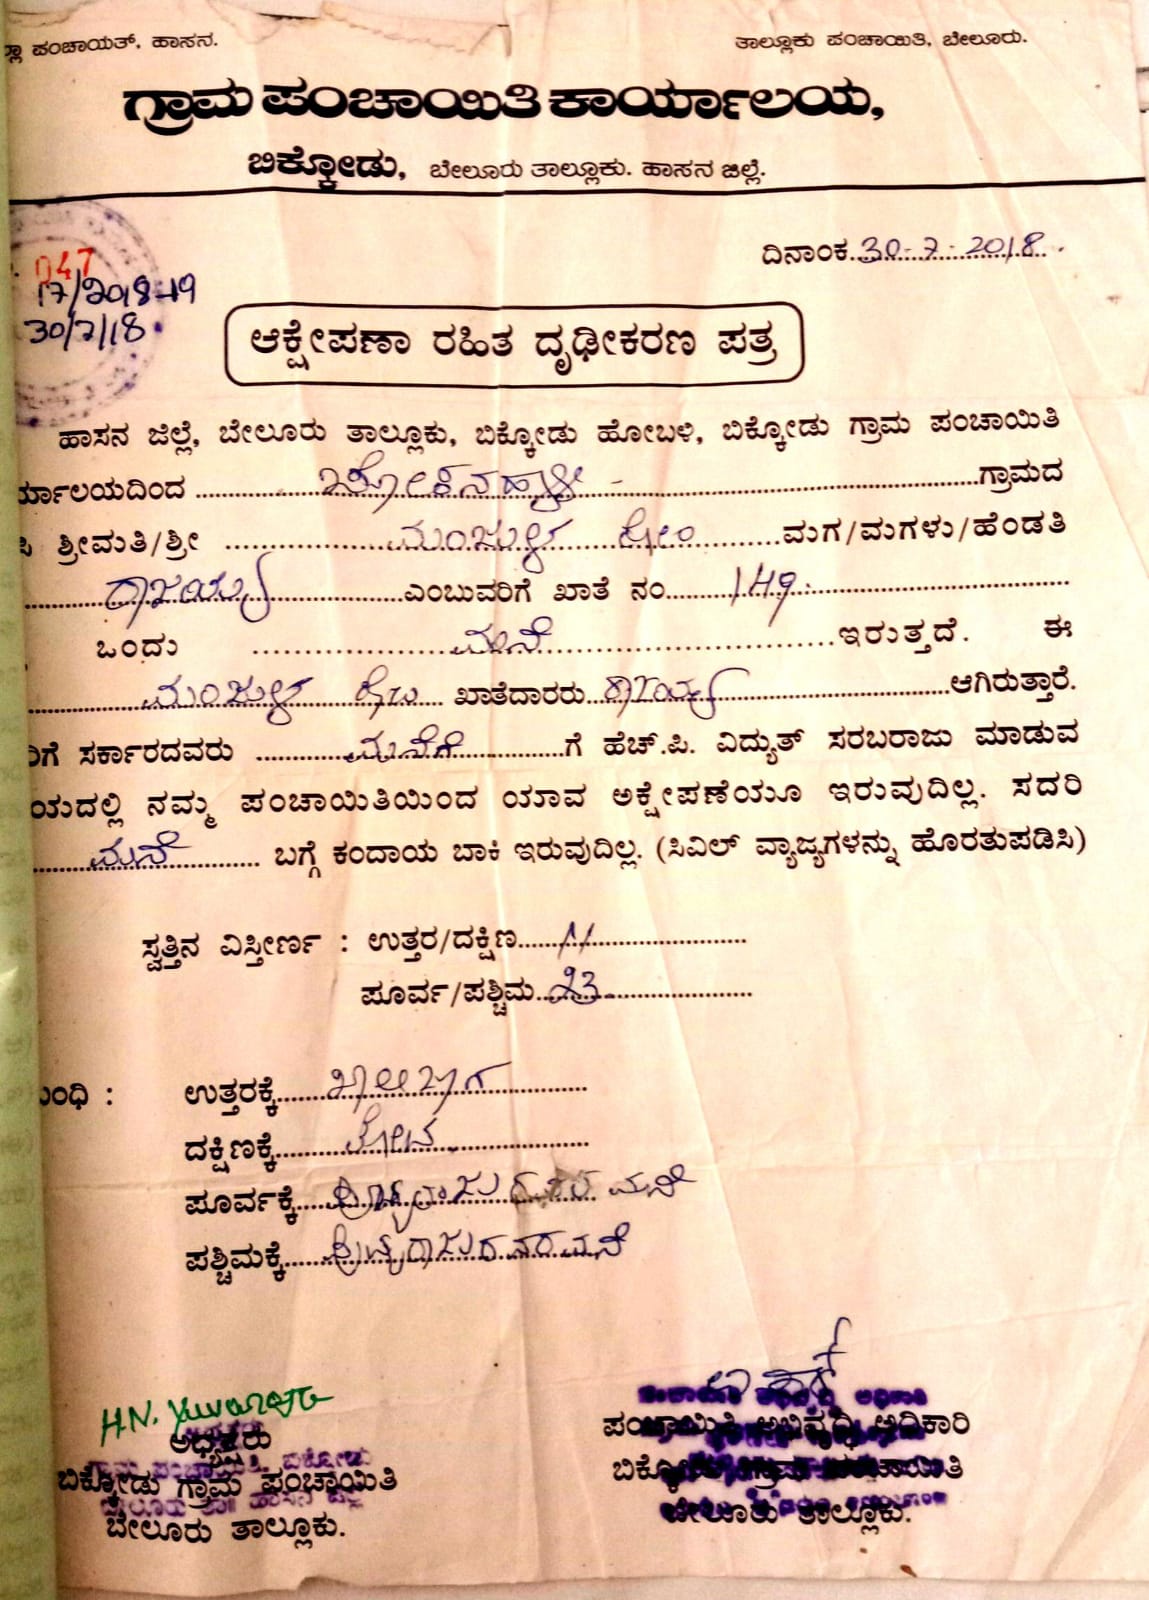 ಪಂಚಾಯತ್, ಹಾಸನ. ತಾಲ್ಲೂಕು ಪಂಚಾಯಿತಿ, ಬೇಲೂರು.
ಗ್ರಾಮ ಪಂಚಾಯಿತಿ ಕಾರ್ಯಾಲಯ,
ಬಿಕ್ಕೋಡು, ಬೇಲೂರು ತಾಲ್ಲೂಕು. ಹಾಸನ ಜಿಲ್ಲೆ.
ದಿನಾಂಕ 30-7-2018
047
17/2018-19
30/7/18
ಆಕ್ಷೇಪಣಾ ರಹಿತ ದೃಢೀಕರಣ ಪತ್ರ
ಹಾಸನ ಜಿಲ್ಲೆ, ಬೇಲೂರು ತಾಲ್ಲೂಕು, ಬಿಕ್ಕೋಡು ಹೋಬಳಿ, ಬಿಕ್ಕೋಡು ಗ್ರಾಮ ಪಂಚಾಯಿತಿ
ರ್ಯಾಲಯದಿಂದ ಗ್ರಾಮದ
ಶ್ರೀಮತಿ/ಶ್ರೀ ಮಂಜುಳ ಕೋಂ ಮಗ/ಮಗಳು/ಹೆಂಡತಿ
ರಾಜಯ್ಯ ಎಂಬುವರಿಗೆ ಖಾತೆ ನಂ 149
ಒಂದು ಮನೆ ಇರುತ್ತದೆ. ಈ
ಮಂಜುಳ ಖಾತೆದಾರರು ಆಗಿರುತ್ತಾರೆ.
ರಿಗೆ ಸರ್ಕಾರದವರು ಮನೆಗೆ ಗೆ ಹೆಚ್.ಪಿ. ವಿದ್ಯುತ್ ಸರಬರಾಜು ಮಾಡುವ
ಯದಲ್ಲಿ ನಮ್ಮ ಪಂಚಾಯಿತಿಯಿಂದ ಯಾವ ಅಕ್ಷೇಪಣೆಯೂ ಇರುವುದಿಲ್ಲ. ಸದರಿ
ಮನೆ ಬಗ್ಗೆ ಕಂದಾಯ ಬಾಕಿ ಇರುವುದಿಲ್ಲ. (ಸಿವಿಲ್ ವ್ಯಾಜ್ಯಗಳನ್ನು ಹೊರತುಪಡಿಸಿ)
ಸ್ವತ್ತಿನ ವಿಸ್ತೀರ್ಣ : ಉತ್ತರ/ದಕ್ಷಿಣ
ಪೂರ್ವ/ಪಶ್ಚಿಮ 23
ಬಂಧಿ : ಉತ್ತರಕ್ಕೆ ಖಾಲಿಜಾಗ
ದಕ್ಷಿಣಕ್ಕೆ
ಪೂರ್ವಕ್ಕೆ ಮನೆ
ಪಶ್ಚಿಮಕ್ಕೆ ಮನೆ
H.N.
ಅಧ್ಯಕ್ಷರು
ಬಿಕ್ಕೋಡು ಗ್ರಾಮ ಪಂಚಾಯಿತಿ
ಬೇಲೂರು ತಾಲ್ಲೂಕು.
ಪಂಚಾಯಿತಿ ಅಭಿವೃದ್ಧಿ ಅಧಿಕಾರಿ
ಬಿಕ್ಕೋಡು ಗ್ರಾಮ ಪಂಚಾಯಿತಿ
ಬೇಲೂರು ತಾಲ್ಲೂಕು.